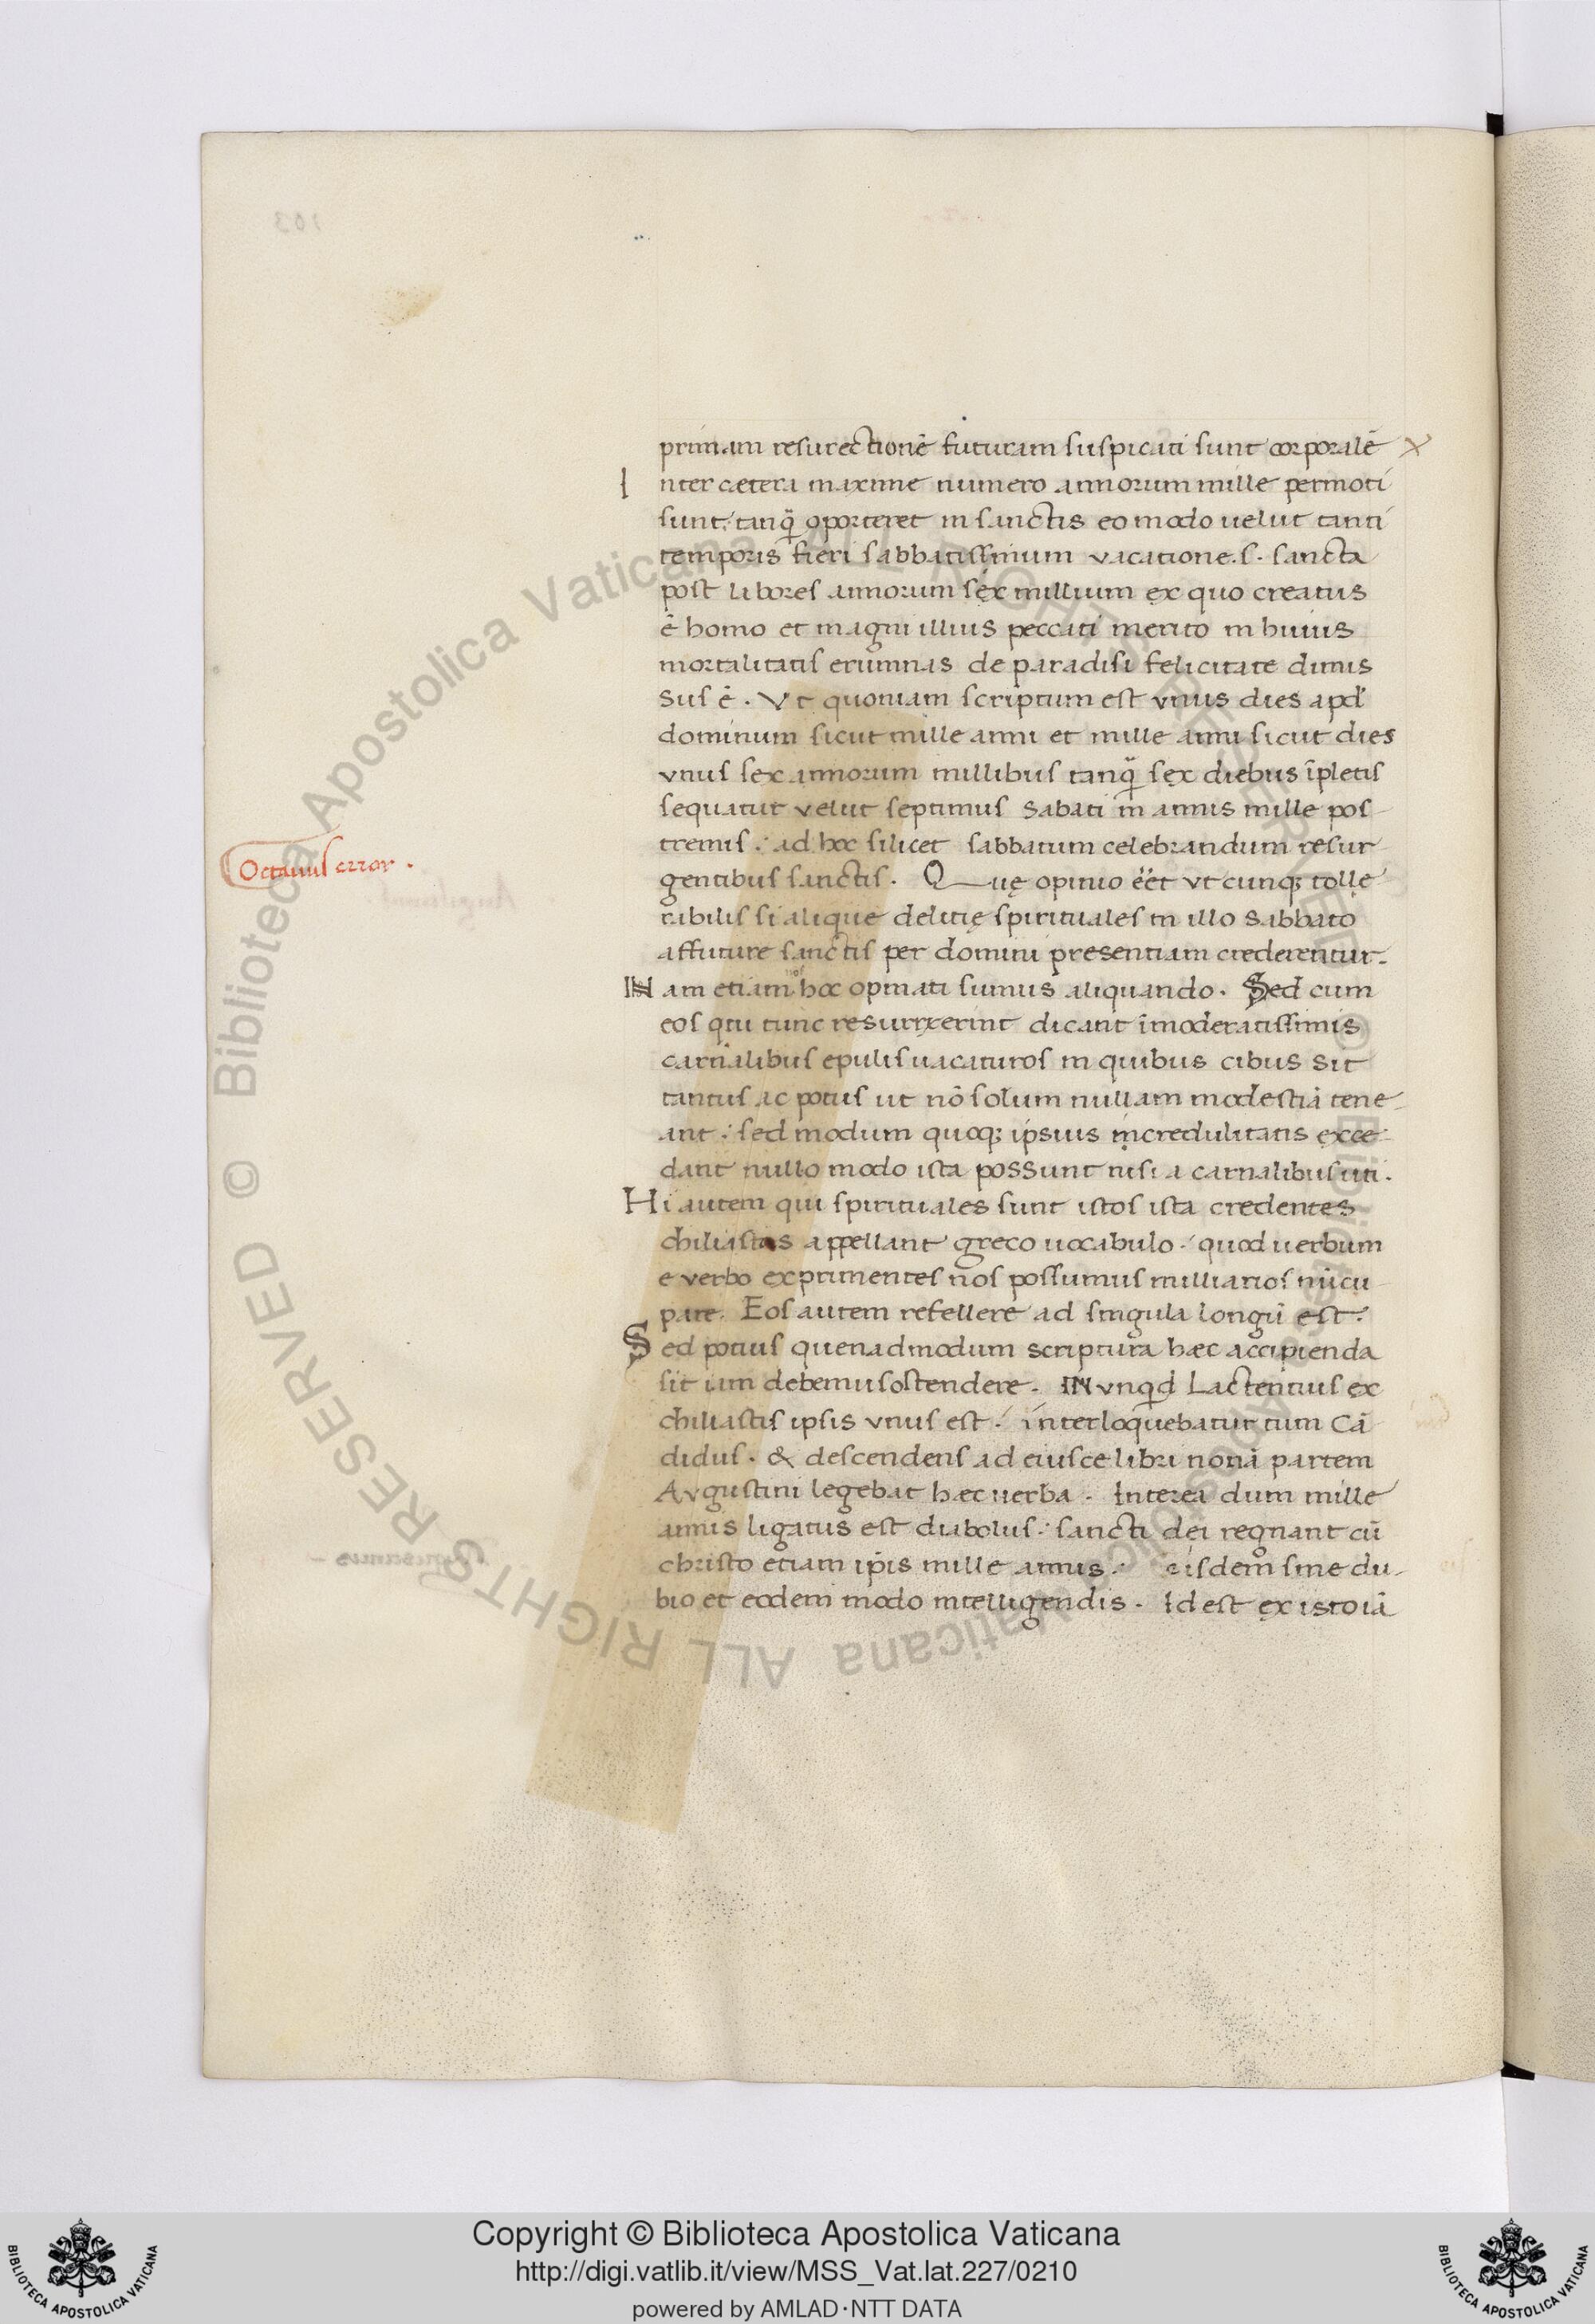 primam resurectionē futuram suspicati sunt corporalē
Inter cætera maxime numero annorum mille permoti
sunt, tanq̄ oporteret in sanctis eo modo uelut tanti
temporis fieri sabbatissimum vacatione .s. sancta
post labores annorum sex millium ex quo creatus
ē homo et magni illius peccati merito in huius
mortalitatis erumnas de paradisi felicitate dimis
sus ē. Vt quoniam scriptum est vnus dies apd'
dominum sicut mille anni et mille anni sicut dies
vnus sex annorum millibus tanq̄ sex diebus īpletis
sequatur velut septimus sabati in annis mille pos-
tremis: ad hoc silicet sabbatum celebrandum resur
gentibus sanctis. Quę opinio eēt vtcunq; tolle
rabilis si alique delitię spirituales in illo sabbato
affuture sanctis per domini presentiam crederentur.
Octauus error.
Nam etiam nos hoc opinati sumus aliquando. Sed cum
eos qui tunc resurrxerint dicant īmoderatissimis
carnalibus epulis uacaturos in quibus cibus sit
tantus ac potus ut nō solum nullam modestiā tene-
ant: sed modum quoq; ipsius incredulitatis exce-
dant nullo modo ista possunt nisi a carnalibus uti.
Hi autem qui spirituales sunt istos ista credentes
chiliastas appellant greco uocabulo: quod uerbum
e verbo exprimentes nos possumus milliarios nūcu-
pare. Eos autem refellere ad singula longū est:
Sed potius quenadmodum scriptura hæc accipienda
sit iam debemus ostendere. Nvnqd Lactentius ex
chiliastis ipsis vnus est: interloquebatur tum Cā-
didus. & descendens ad eiusce libri nonā partem
Avgustini legebat hæc uerba. Interea dum mille
annis ligatus est diabolus: sancti dei regnant cū
christo etiam ipis mille annis: eisdem sine du-
bio et eodem modo intelligendis. Id est ex isto iā
103
© Biblioteca Apostolica Vaticana ALL RIGHTS RESERVED © Biblioteca Apostolica Vaticana ALL RIGHTS RESERVED
Copyright © Biblioteca Apostolica Vaticana
http://digi.vatlib.it/view/MSS_Vat.lat.227/0210
powered by AMLAD·NTT DATA
BIBLIOTECA APOSTOLICA VATICANA
BIBLIOTECA APOSTOLICA VATICANA